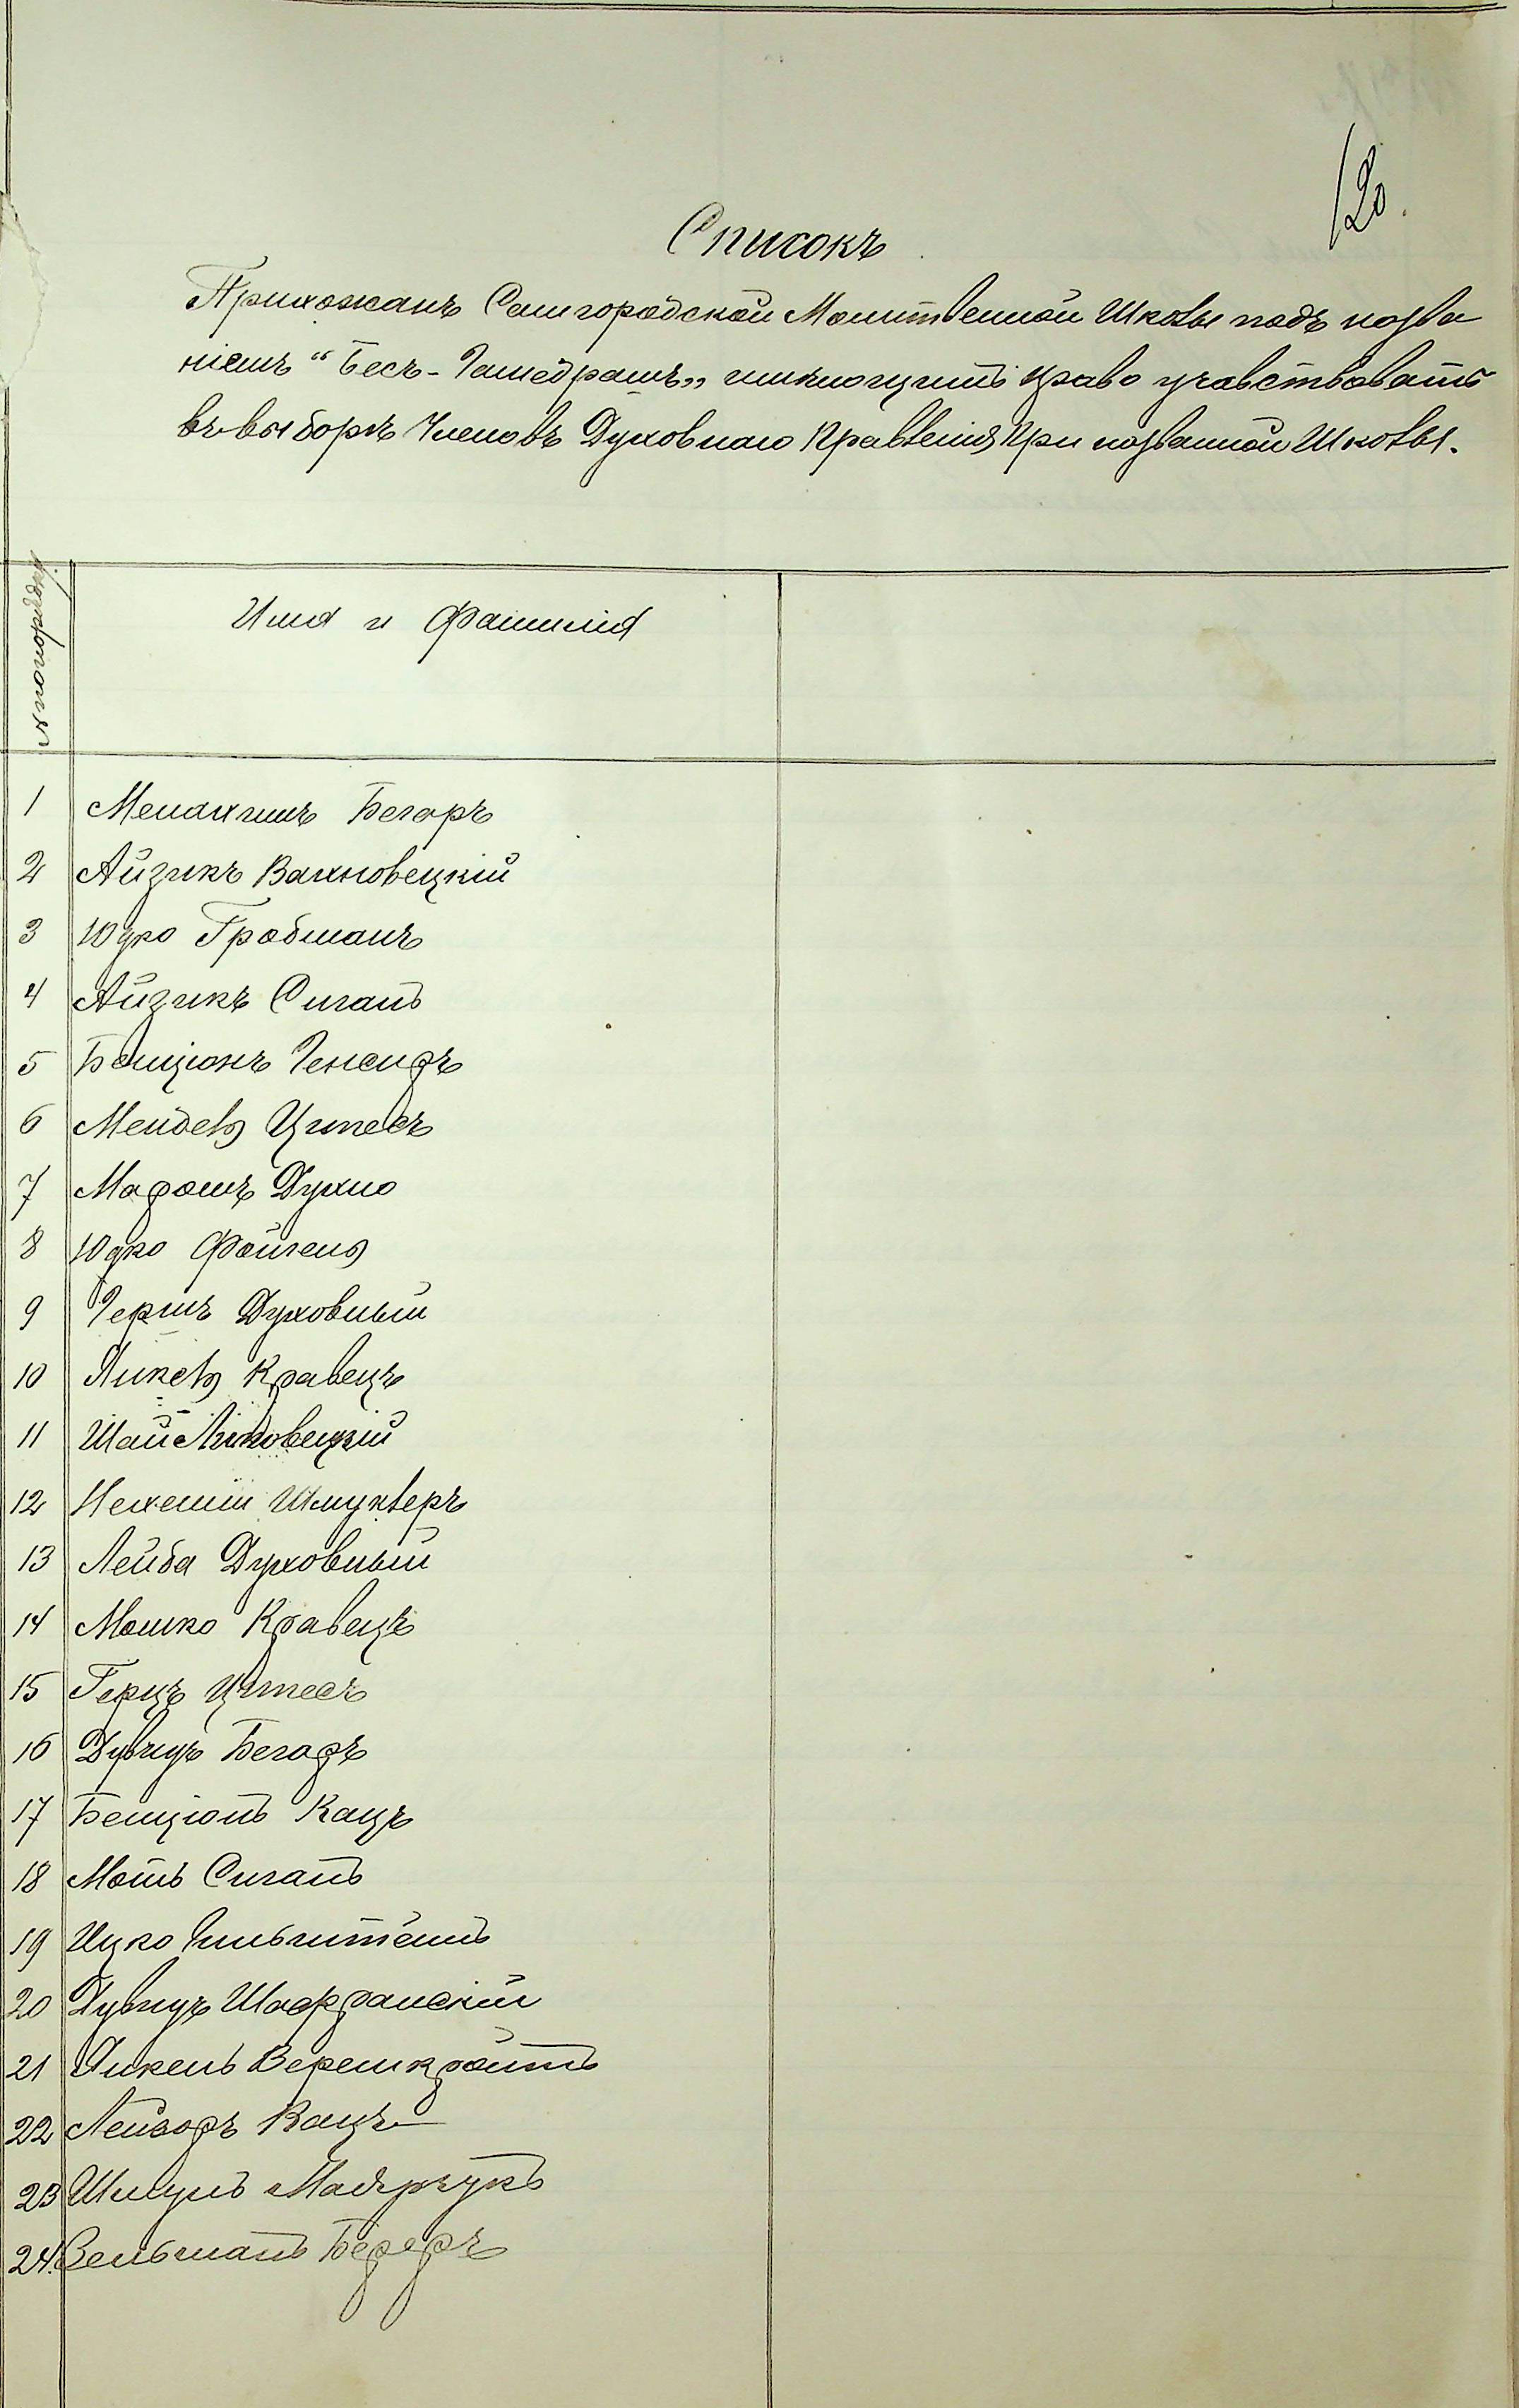 120.
Списокъ
Прихожанъ Самгородской Молитвенной Школы подъ назва
ніемъ "Бесъ-Гамедрашъ„ имѣющихъ право учавствовать
въ выборѣ Членовъ Духовнаго Правленія при названной Школы.
№ по порядку.
Имя и Фамилія
1 Менахимъ Бегаръ
2 Айзикъ Вахновецкій
3 Юдко Гробманъ
4 Айзикъ Сиганъ
5 Бенціонъ
6 Мендель Цитесъ
7 Духно
8 Юдко Фойгель
9 Гершъ Духовный
10 Янкель Кравецъ
11 Шая
12 Нехемія Шмуклеръ
13 Лейба Духовный
14 Мошко Кравецъ
15 Герцъ Цитесъ
16 Дувидъ Бегаръ
17 Бенціонъ Кацъ
18 Моть Сиганъ
19 Ицко
20 Дувидъ Шафранскій
21 Янкель
22 Лейзоръ Кацъ
23 Шмуль
24. Зельманъ Береръ